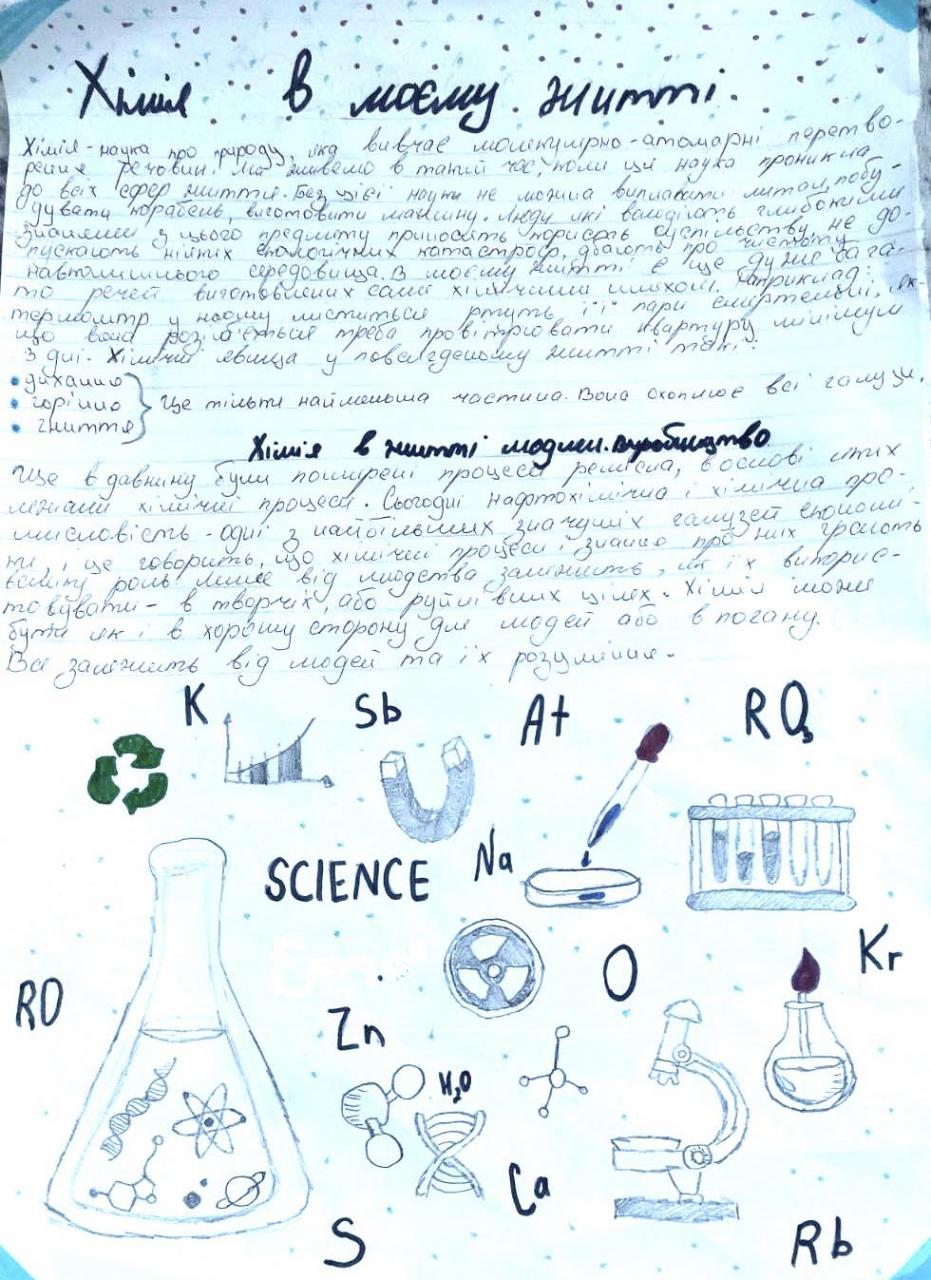 Хімія в моєму житті.
Хімія - наука про природу, яка вивчає молекулярно-атомарні перетво-
рення речовин. Ми живемо в такий час, коли ця наука проникла
до всіх сфер життя. Без цієї науки не можна виплавити метал, побу-
дувати корабель, виготовити машину. Люди які володіють глибокими
знаннями з цього предмету приносять користь суспільству, не до-
пускають нійких екологічних катастроф, дбають про чистоту
навколишнього середовища. В моєму житті є ще дуже бага-
то речей виготовлених саме хімічним шляхом. Наприклад:
термомтр у ньому міститься ртуть її пари смертельні, як-
що вона розіб'ється треба провітрювати квартуру мінімум
3 дні. Хімічні явища у повсягденому житті такі:
• дихання
• горіння
• гниття
Це тільки найменьша частина. Вона охоплює всі галузи.
Хімія в житті людини. Виробництво
Ще в давнину були поширені процеси ремесла, в основі яких
лежали хімічні процеси. Сьогодні нафтохімічна і хімічна про-
мисловість - одні з найбільших значущіх галузей економі-
ки, і це говорить, що хімічні процеси і знання про них грають
велику роль лише від людства залежить, як їх викорис-
товувати - в творчіх, або руйнівних цілях. Хімія може
бути як і в хорошу сторону для людей або в погану.
Все залежить від людей та їх розуміння.
K
Sb
At
RO₃
SCIENCE
Na
RO
O
Kr
Zn
H₂O
Ca
S
Rb